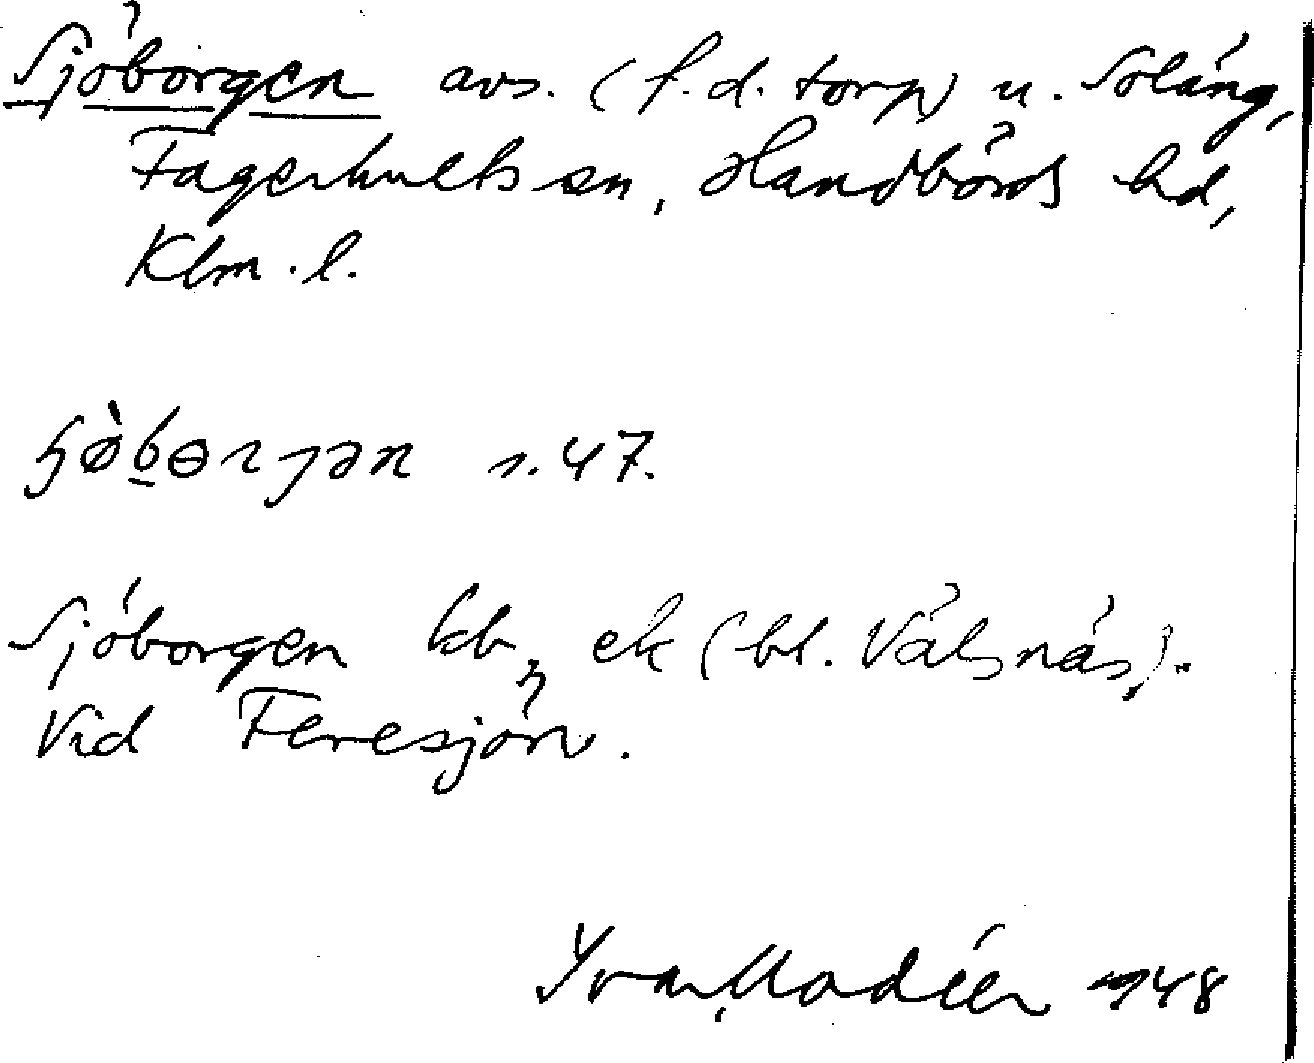 Sjöborgen avs. (f.d. torp) u. Soläng,
Fagerhults sn, Handbörds hd,
Klm. l.
ɧø̀bɵrjən s. 47.
Sjöborgen kb, ek (bl. Välsnäs).
Vid Feresjön.
Ivar Modéer 1948